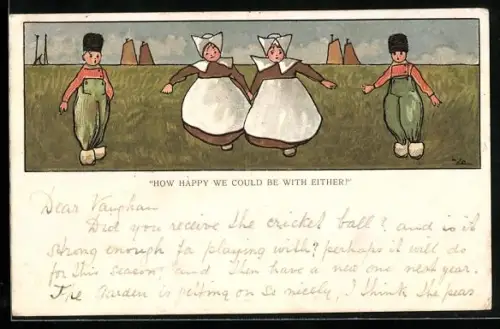 "HOW HAPPY WE COULD BE WITH EITHER!"
Dear Vaughan
Did you receive the cricket ball? and is it
strong enough for playing with? perhaps it will do
for this season, and then have a new one next year.
The Garden is getting on so nicely, I think the peas